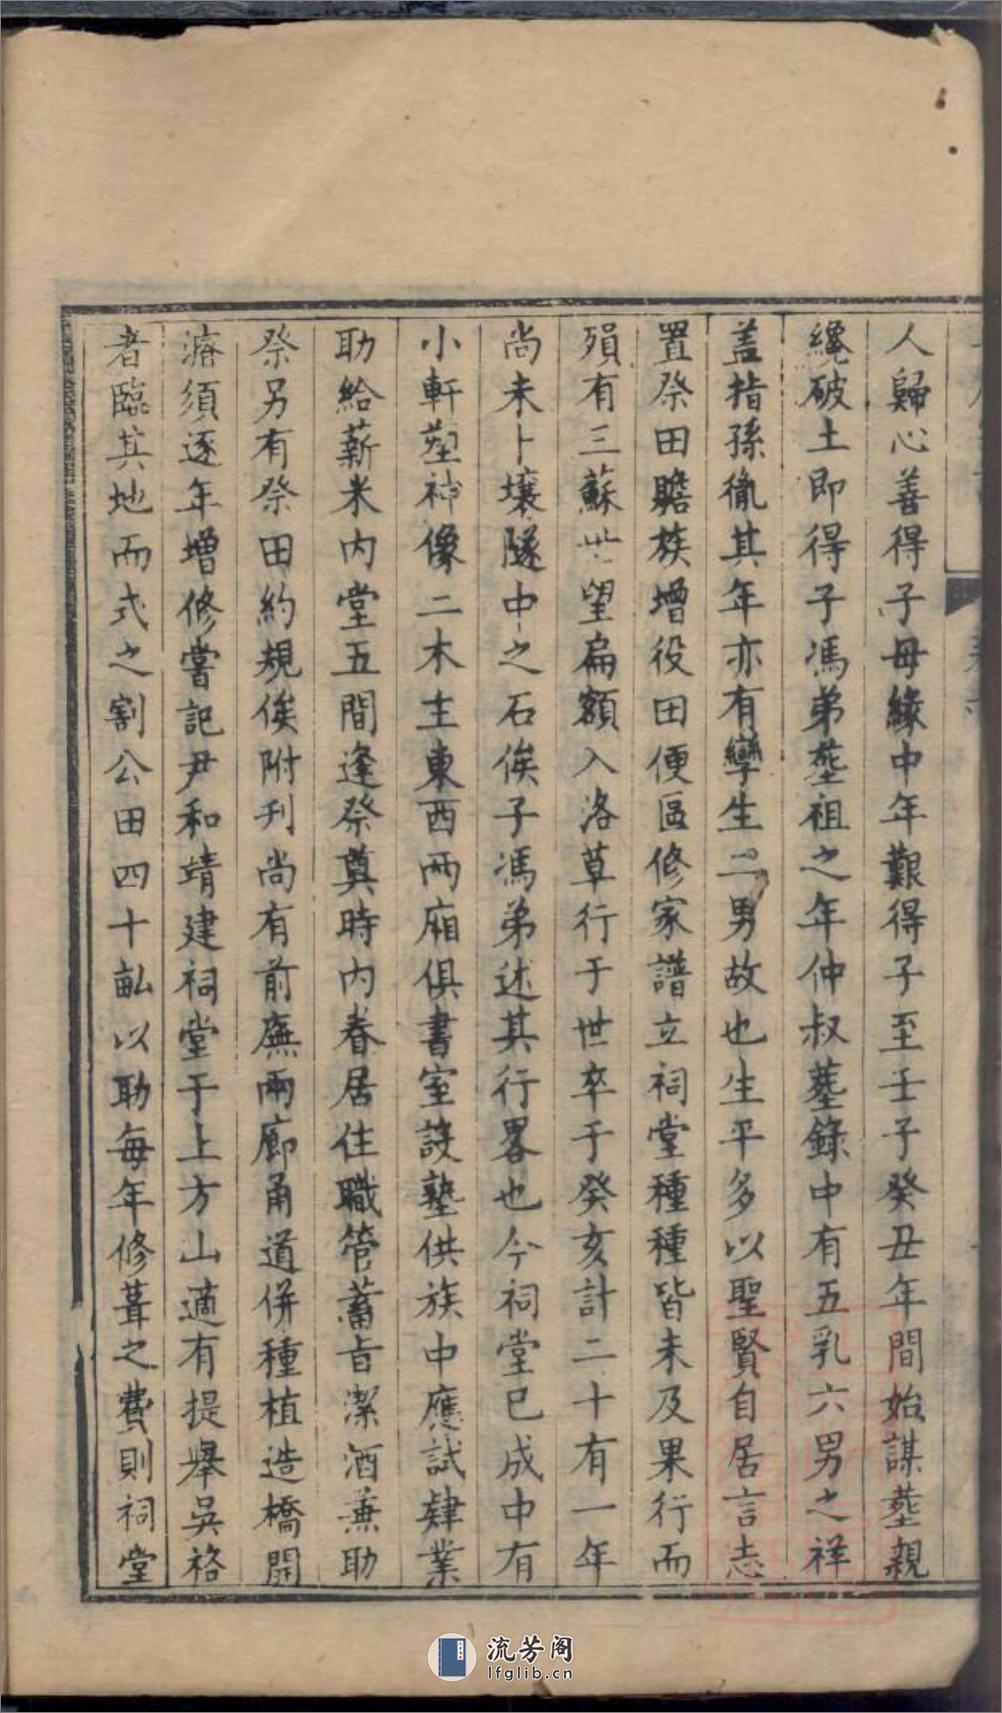 人歸心善得子毋緣中年艱得子至壬子癸丑年間始謀塟親
纔破土即得子馮弟塟祖之年仲叔墓錄中有五乳六男之祥
盖指孫胤其年亦有孿生二男故也生平多以聖賢自居言志
置祭田贍族增役田便區修家譜立祠堂種種皆未及果行而
殞有三蘇世望扁額入洛草行于世卒于癸亥計二十有一年
尚未卜壤隧中之石俟子馮弟述其行畧也今祠堂已成中有
小軒塑神像二木主東西兩廂俱書室設塾供族中應試肄業
助給薪米内堂五間逢祭奠時内眷居住職管蓄旨潔酒兼助
祭另有祭田約規俟附刋尚有前廡兩廊甬道併種植造橋開
濬須逐年增修嘗記尹和靖建祠堂于上方山適有提舉吳
者臨其地而式之割公田四十畝以助每年修葺之費則祠堂
流芳阁
lfglib.cn